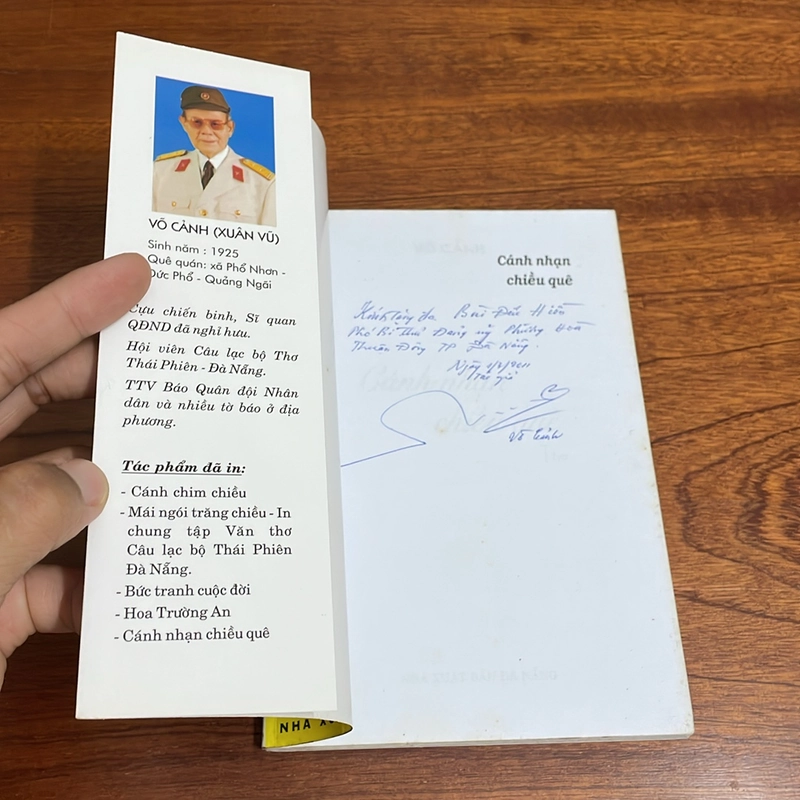 VÕ CẢNH (XUÂN VŨ)
Sinh năm : 1925
Quê quán: xã Phổ Nhơn -
Đức Phổ - Quảng Ngãi
Cựu chiến binh, Sĩ quan
QĐND đã nghỉ hưu.
Hội viên Câu lạc bộ Thơ
Thái Phiên - Đà Nẵng.
TTV Báo Quân đội Nhân
dân và nhiều tờ báo ở địa
phương.
Tác phẩm đã in:
- Cánh chim chiều
- Mái ngói trăng chiều - In
chung tập Văn thơ
Câu lạc bộ Thái Phiên
Đà Nẵng.
- Bức tranh cuộc đời
- Hoa Trường An
- Cánh nhạn chiều quê
NHÀ
Cánh nhạn
chiều quê
Kính tặng Bùi Hiền
Phó Bí Thư Đảng Phường Hòa
Thuận Đông TP Đà Nẵng.
Ngày
Tác giả
Võ Cảnh